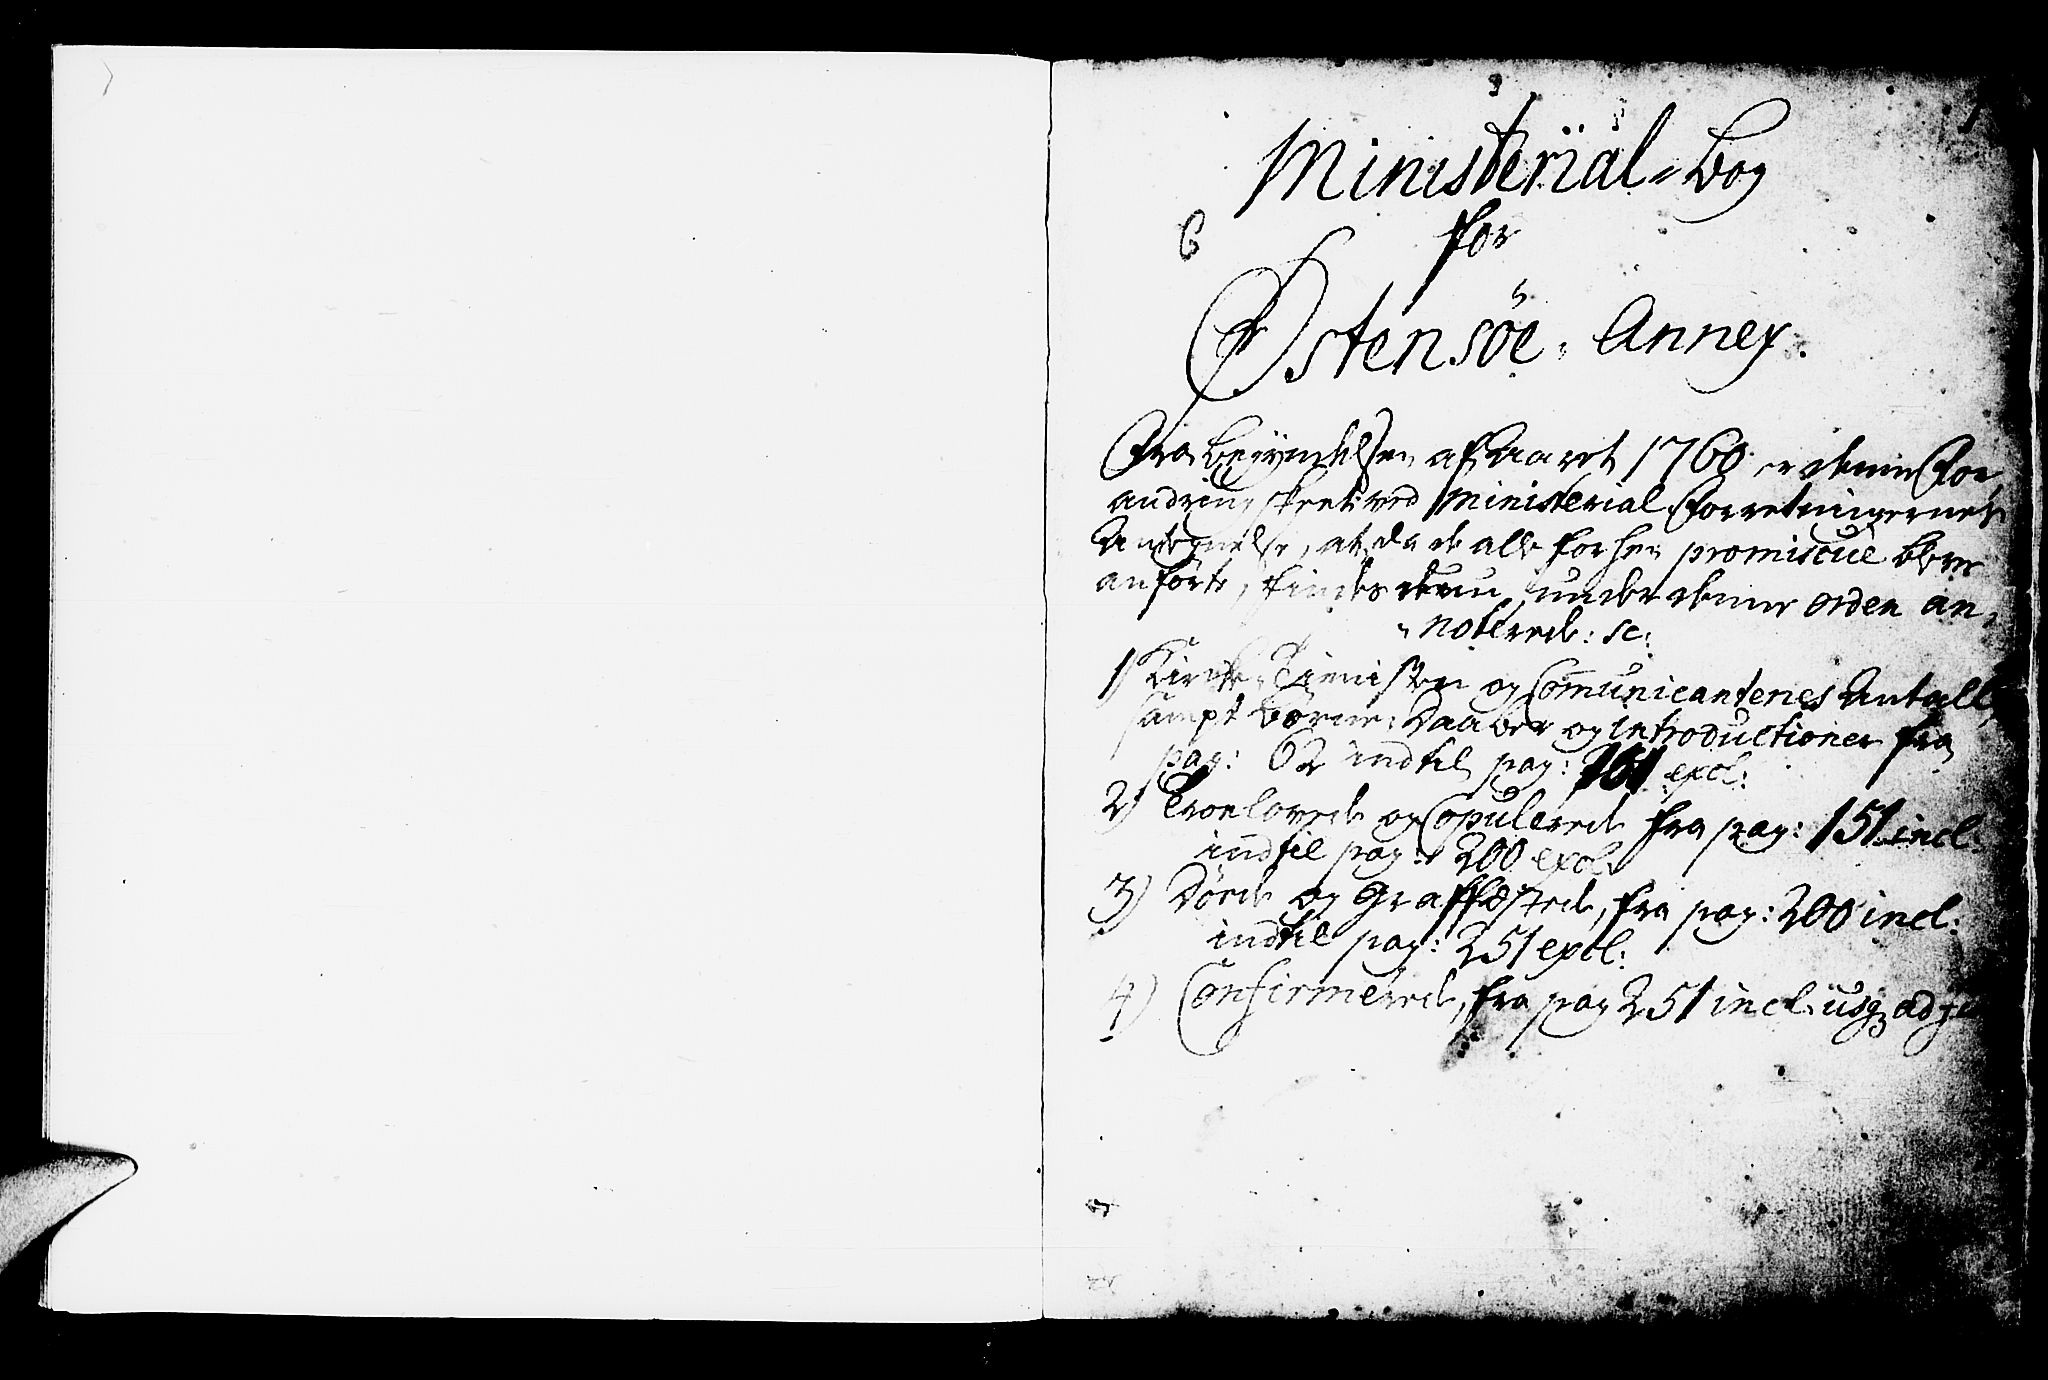 Ministerial-Bog
for
Østensøe Annex.
Fra Begyndelsen af Aaret 1760 er denne For
andring skeet ved Ministerial Forretningernes
Antegnelse, at da de alle forhen promiscue bleve
anførte, findes de nu under denne orden an-
noterede: sc:
1) Kirke-Tienisten og Communicanternes Antall,
sampt Børne-Daaber og introductioner fra
pag: 62 indtil pag: 151 excl:
2) Troelovede og Copulerede fra pag: 151 incl.
indtil pag: 200 excl.
3) Døde og Graffæstede, fra pag: 200 incl:
indtil pag: 251 excl:
4) Confirmerede, fra pag 251 incl: usq ad